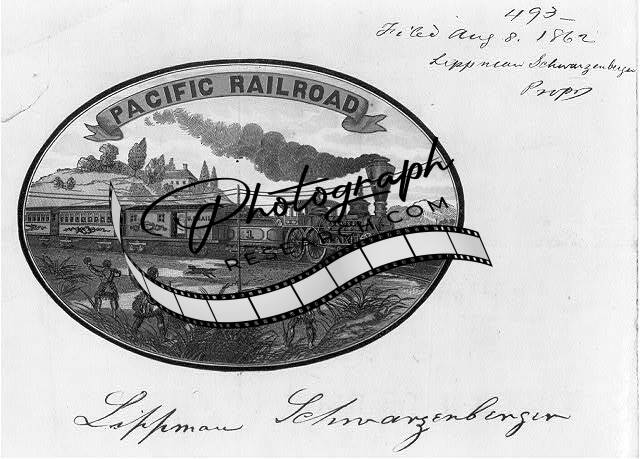 493-
Filed Aug 8. 1862
Lippman Schwarzenberger
Propr
PACIFIC RAILROAD
Photograph
RESEARCH.COM
Lippman Schwarzenberger